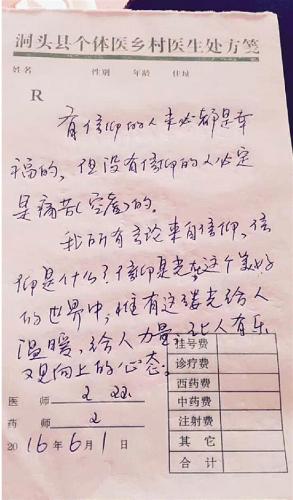 洞头县个体医乡村医生处方笺
姓名 性别 年龄 住址
R
有信仰的人未必都是幸
福的，但没有信仰的人必定
是痛苦(空虚)的。
我所有言论来自信仰，信
仰是什么？信仰是光，在这个美好
的世界中，惟有这缕光给人
温暖，给人力量，让人有乐
观向上的心态。
挂号费
诊疗费
西药费
中药费
注射费
其它
合计
医师
药师
2016年6月1日